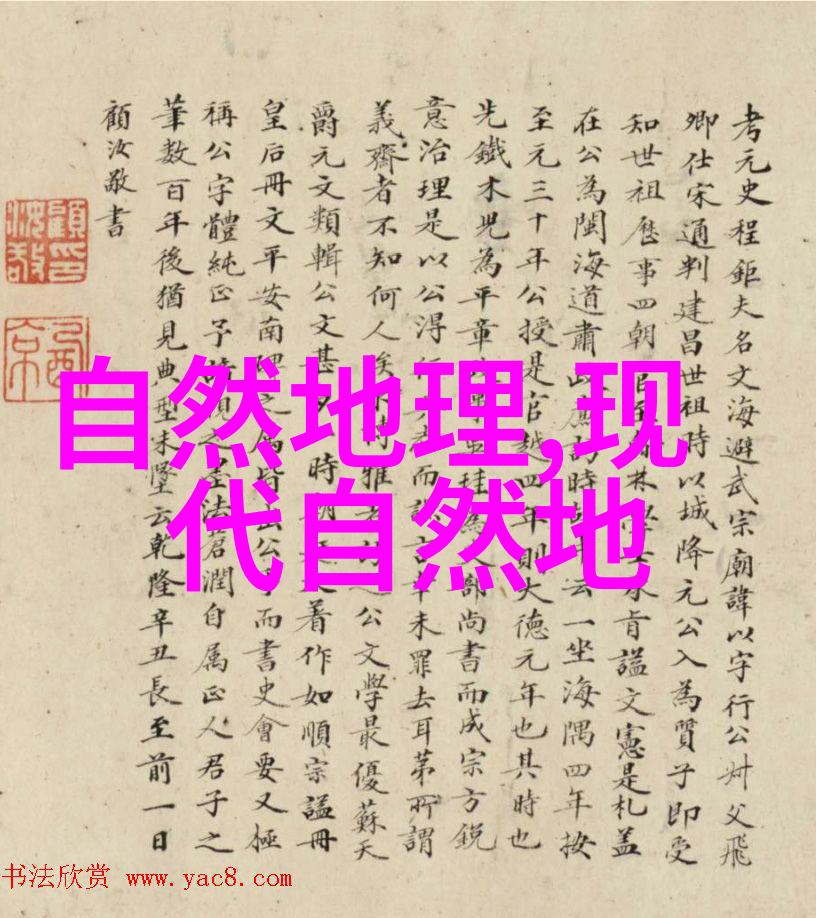 考元史程鉅夫名文海避武宗廟諱以字行公叔父飛
卿仕宋通判建昌世祖時以城降元公入為質子即受
知世祖歷事四朝
肯謚文憲是札蓋
在公為閩海道肅
云一坐海隅四年按
至元三十年公授是官越四年則大德元年也其時也
先鐵木兒為平章
部尚書而成宗方銳
意治理是以公得
未罪去耳苐所謂
義齋者不知何人
公文學最優蘇天
爵元文類輯公文甚
時
著作如順宗謚冊
皇后冊文平安南碑
而書史會要又極
稱公字體純正予
法唐潤自属正人君子之
筆數百年後猶見典型未墜云乾隆辛丑長至前一日
顧汝敬書
自然地理,现
代自然地
书法欣赏 www.yac8.com